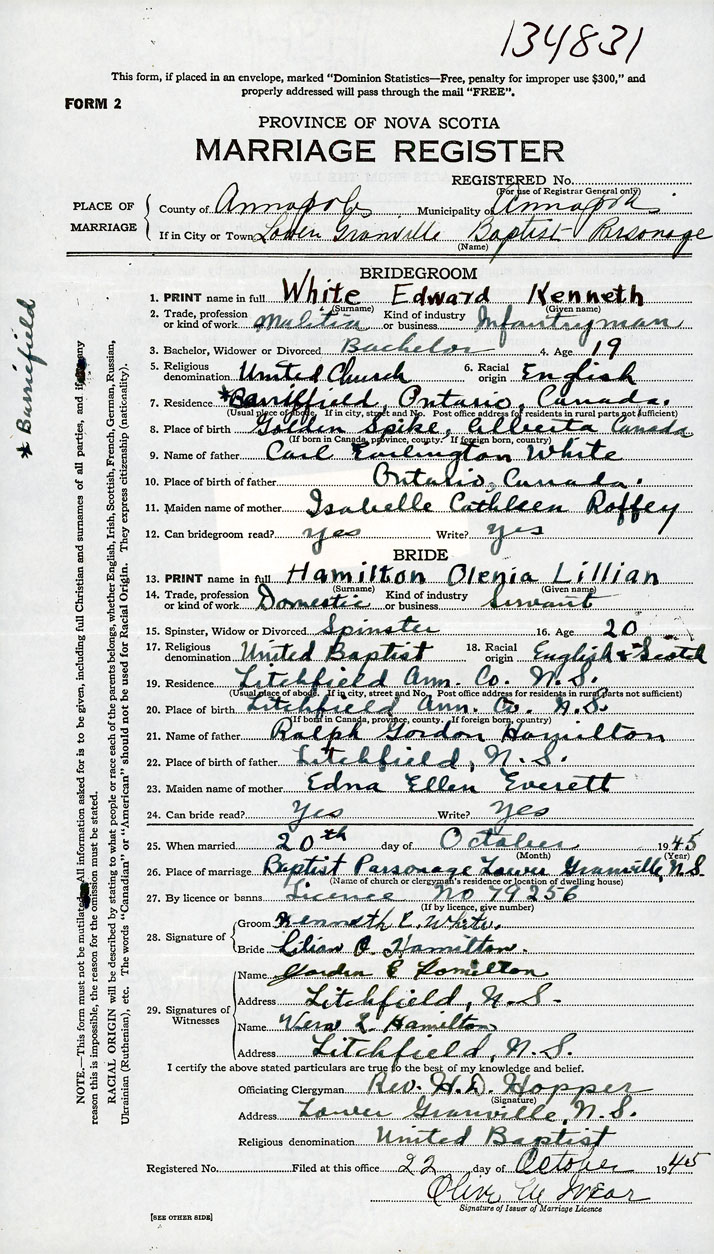 134831
This form, if placed in an envelope, marked "Dominion Statistics—Free, penalty for improper use $300," and
properly addressed will pass through the mail "FREE".
FORM 2
PROVINCE OF NOVA SCOTIA
MARRIAGE REGISTER
REGISTERED No.
(For use of Registrar General only)
PLACE OF MARRIAGE
County of Annapolis Municipality of Annapolis
If in City or Town Lower Granville Baptist Parsonage
(Name)
BRIDEGROOM
1. PRINT name in full White Edward Kenneth
(Surname) (Given name)
2. Trade, profession or kind of work Militia Kind of industry or business Infantryman
3. Bachelor, Widower or Divorced Bachelor 4. Age 19
5. Religious denomination United Church 6. Racial origin English
7. Residence *Barriefield, Ontario, Canada.
(Usual place of abode. If in city, street and No. Post office address for residents in rural parts not sufficient)
8. Place of birth Golden Spike, Alberta Canada
(If born in Canada, province, county. If foreign born, country)
9. Name of father Carl Earlington White
10. Place of birth of father Ontario, Canada.
11. Maiden name of mother Isabelle Cathleen Roffey
12. Can bridegroom read? yes Write? yes
BRIDE
13. PRINT name in full Hamilton Olenia Lillian
(Surname) (Given name)
14. Trade, profession or kind of work Domestic Kind of industry or business Servant
15. Spinster, Widow or Divorced Spinster 16. Age 20
17. Religious denomination United Baptist 18. Racial origin English & Scotch
19. Residence Litchfield Ann. Co. N.S.
(Usual place of abode. If in city, street and No. Post office address for residents in rural parts not sufficient)
20. Place of birth Litchfield Ann. Co. N.S.
(If born in Canada, province, county. If foreign born, country)
21. Name of father Ralph Gordon Hamilton
22. Place of birth of father Litchfield, N.S.
23. Maiden name of mother Edna Ellen Everett
24. Can bride read? Yes Write? Yes
25. When married 20th day of October 1945
(Month) (Year)
26. Place of marriage Baptist Parsonage Lower Granville, N.S.
(Name of church or clergyman's residence or location of dwelling house)
27. By licence or banns Licence No 79256
(If by licence, give number)
28. Signature of
Groom Kenneth E. White.
Bride Lilian O. Hamilton.
29. Signatures of Witnesses
Name Gordon E Hamilton
Address Litchfield, N.S.
Name Vera L. Hamilton
Address Litchfield, N.S.
I certify the above stated particulars are true to the best of my knowledge and belief.
Officiating Clergyman Rev. H.D. Hopper
(Signature)
Address Lower Granville, N.S.
Religious denomination United Baptist
Registered No. Filed at this office 22 day of October 1945
Olive
Signature of Issuer of Marriage Licence
[SEE OTHER SIDE]
* Barriefield
NOTE.—This form must not be mutilated. All information asked for is to be given, including full Christian and surnames of all parties, and if any
reason this is impossible, the reason for the omission must be stated.
RACIAL ORIGIN will be described by stating to what people or race each of the parents belongs, whether English, Irish, Scottish, French, German, Russian,
Ukrainian (Ruthenian), etc. The words "Canadian" or "American" should not be used for Racial Origin. They express citizenship (nationality).